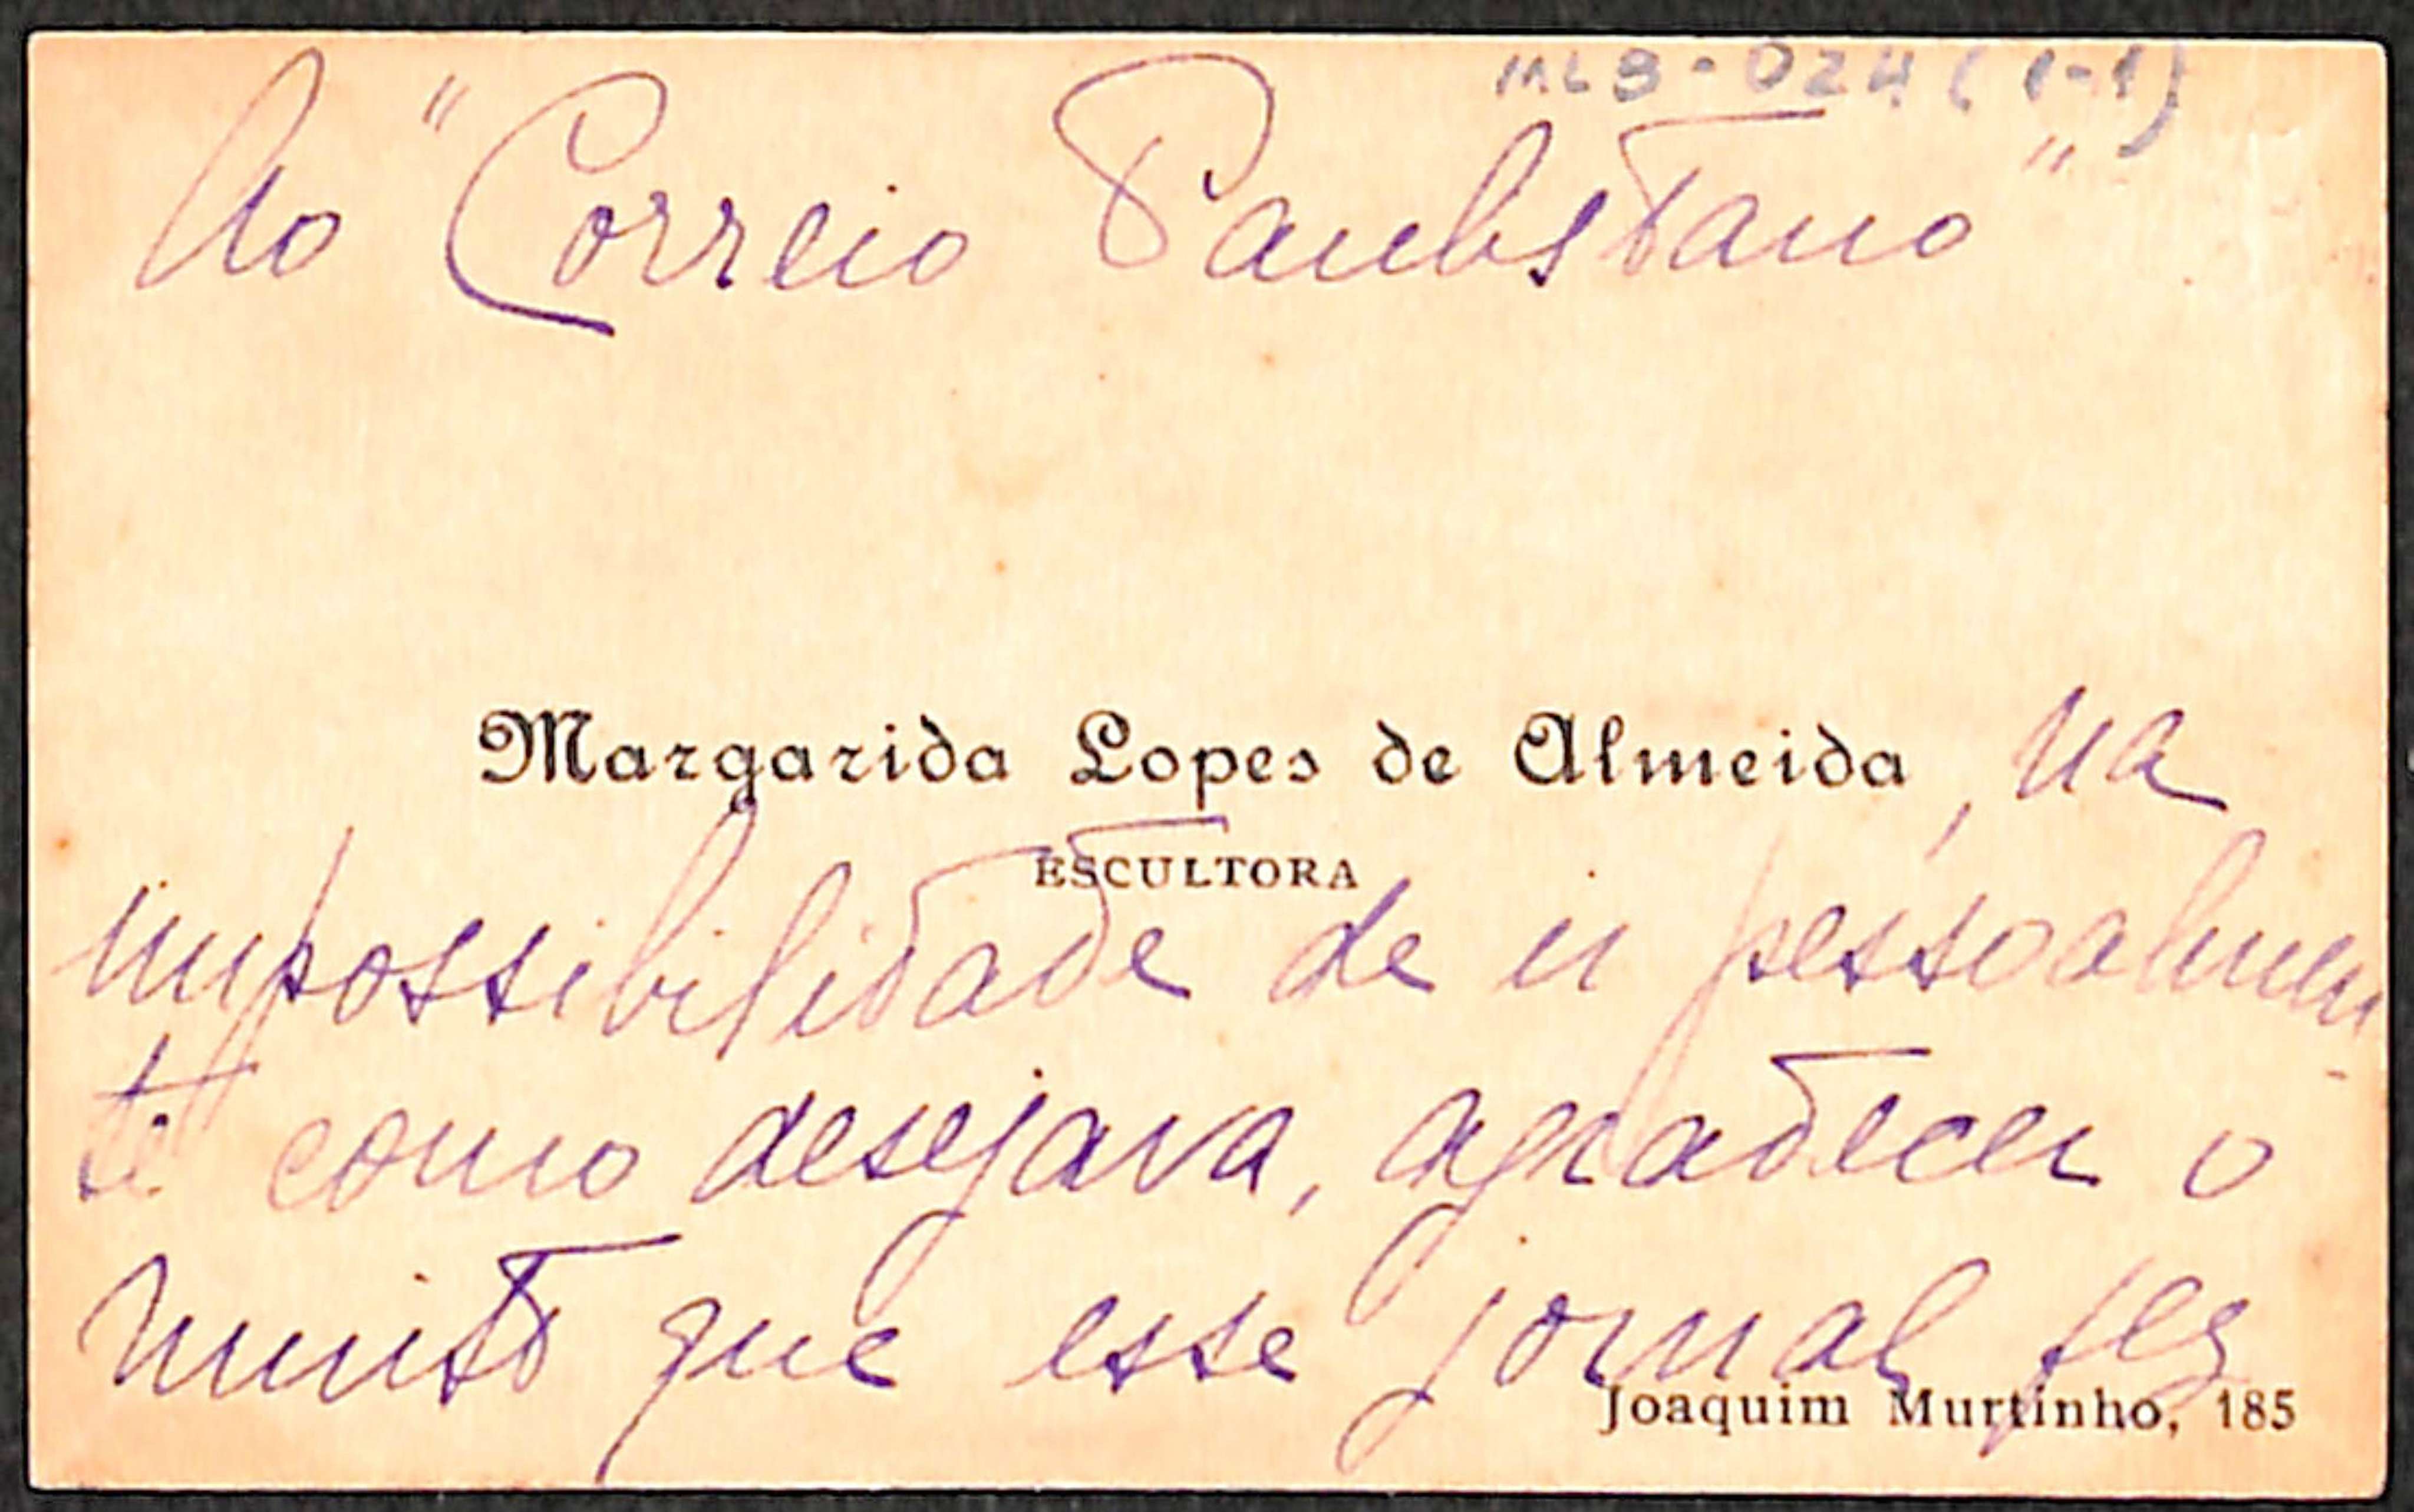 MLB-024 (1-1)
Ao "Correio Paulistano"
Margarida Lopes de Almeida, na
ESCULTORA
impossibilidade de ir pessoalmen-
te como desejava, agradecer o
muito que esse jornal fez
Joaquim Murtinho, 185